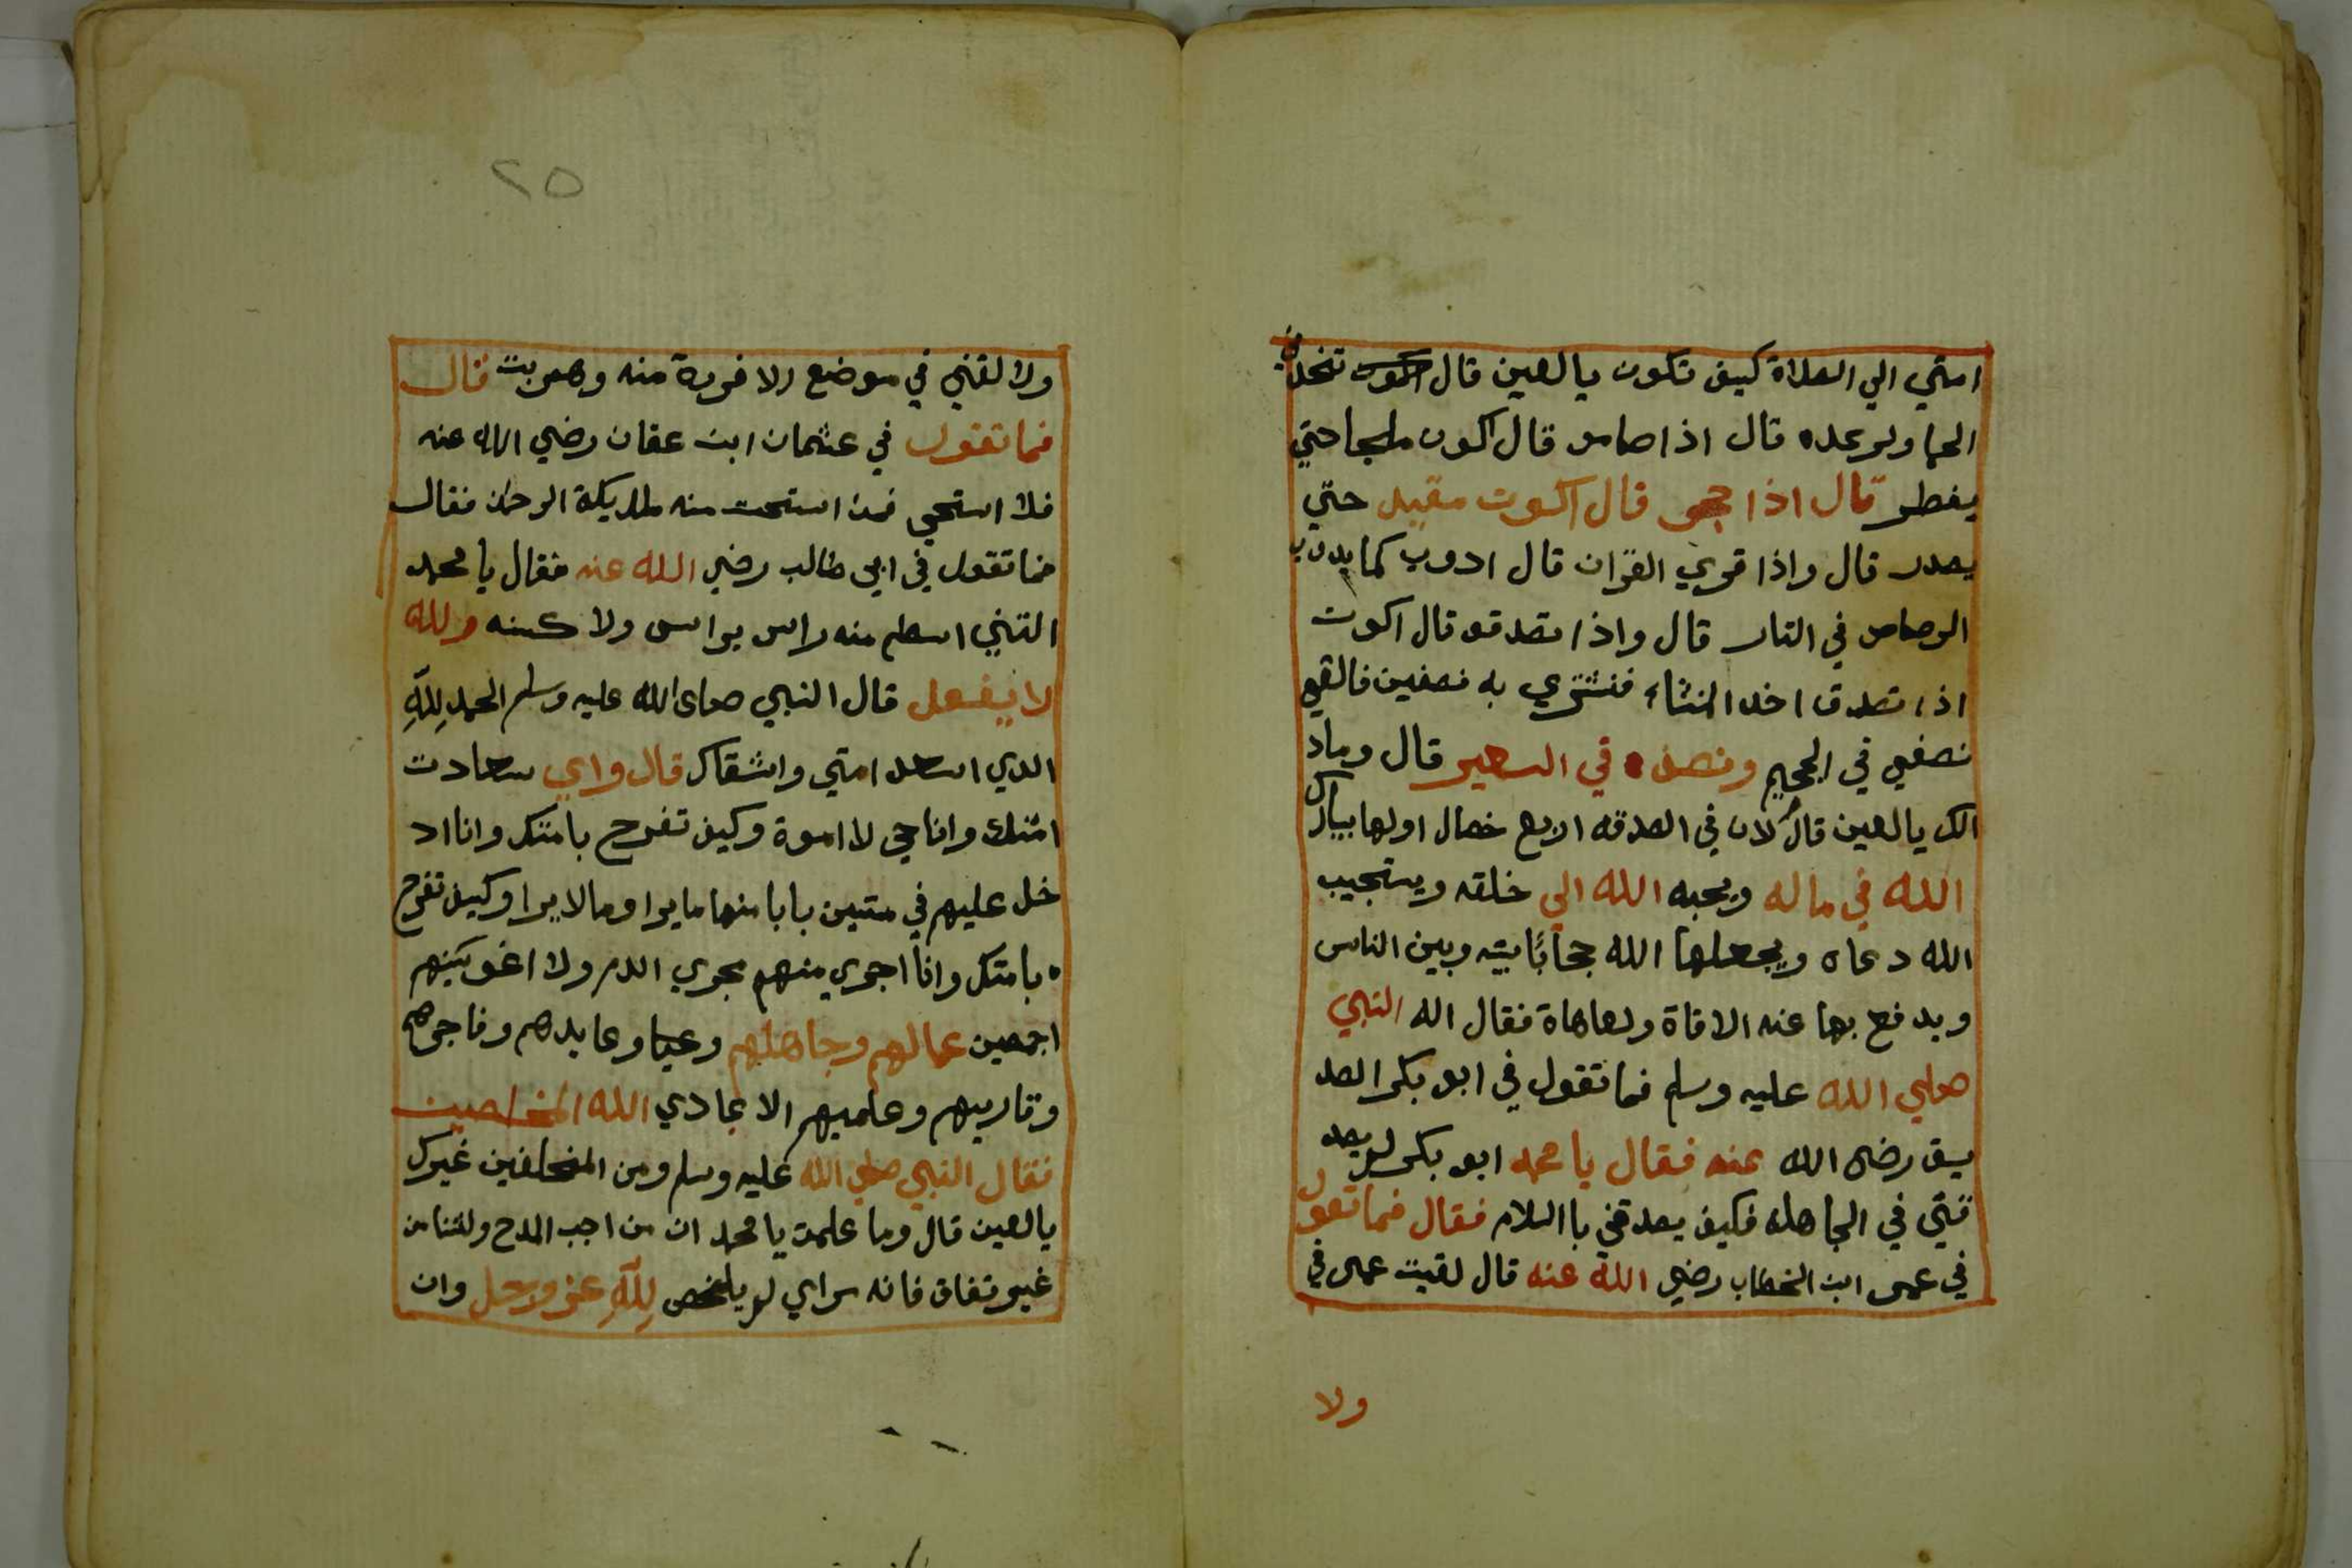 امتي الي الصلاة كيف تكون يالعين قال تخدني
الحما ولرعده قال اذا صامو قال اكون ملجما حتي
يفطر قال اذا حجو قال اكون مقيد حتي
يصدر قال واذا قري القران قال ادوب كما يدوب
الرصاص في النار قال واذا تصدقو قال اكون
اذا تصدق اخد المنشاء فنشتري به نصفين فالقي
نصفي في الجحيم ونصف في السعير قال وماد
الك يالعين قال لان في الصدقه اربع خصال اولها يبارك
الله في ماله ويحبه الله الي خلقه ويستجيب
الله دعاه ويجعلها الله حجابًا بينه وبين الناس
ويدفع بها عنه الافاة ولعاهاة فقال اله النبي
صلي الله عليه وسلم فما تقول في ابو بكر الصد
يق رضي الله عنه فقال يا محمد ابو بكر لم يصد
قني في الجاهله فكيف يصدقني با السلام فقال فما تقول
في عمر ابن الخطاب رضي الله عنه قال لقيت عمر في
ولا
٢٥
ولا لقني في موضع الا فرية منه وهربت قال
فما تقول في عثمان ابن عفان رضي الله عنه
فلا استحي فمن استحت منه ملايكة الرحمن فقال
فما تقول في ابي طالب رضي الله عنه فقال يا محمد
التني اسلم منه راس براس ولا كنه ولله
لا يفعل قال النبي صلى الله عليه وسلم الحمد لله
الدي اسعد امتي واشقاك قال واي سعادت
امتك وانا حي لا اموة وكيف تفرح بامتك وانا اد
خل عليهم في متين بابا منها ما يرا وما لا يرا وكيف تفرح
بامتك وانا اجري منهم مجري الدم ولا اغوينهم
اجمعين عمالهم وجاهلهم وعيا وعابدهم وفاجرهم
وقاريهم وعلميهم الا عبادي الله المخلصين
فقال النبي صلي الله عليه وسلم ومن المخلفين غيرك
يالعين قال وما علمت يا محمد ان من احب المدح ولثنا من
غير نفاق فانه مراي لم يلخص لله عز وجل وان